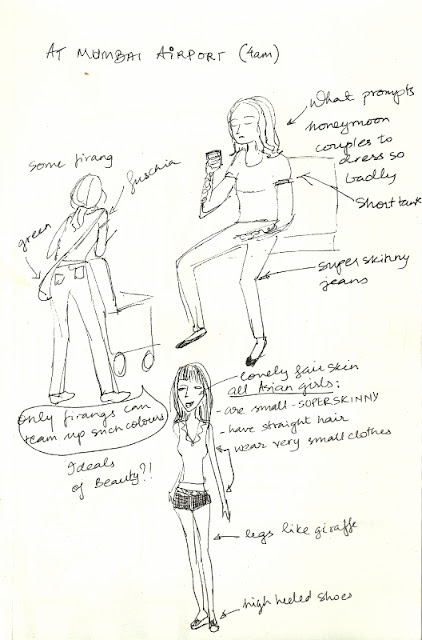 AT MUMBAI AIRPORT (4am)
What prompts
honeymoon
couples to
dress so
badly
Short tank
super skinny
jeans
some firang
fuschia
green
only firangs can
team up such colours
Ideals
of Beauty?!
lovely fair skin
all Asian girls:
- are small - SUPERSKINNY
- have straight hair
- wear very small clothes
legs like giraffe
high heeled shoes